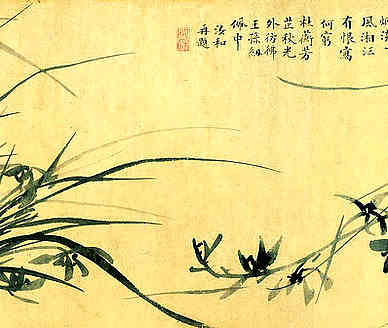 風湘江
有恨寫
何窮
杜蘅芳
芷秋光
外彷彿
王孫紉
佩中
法和
再題